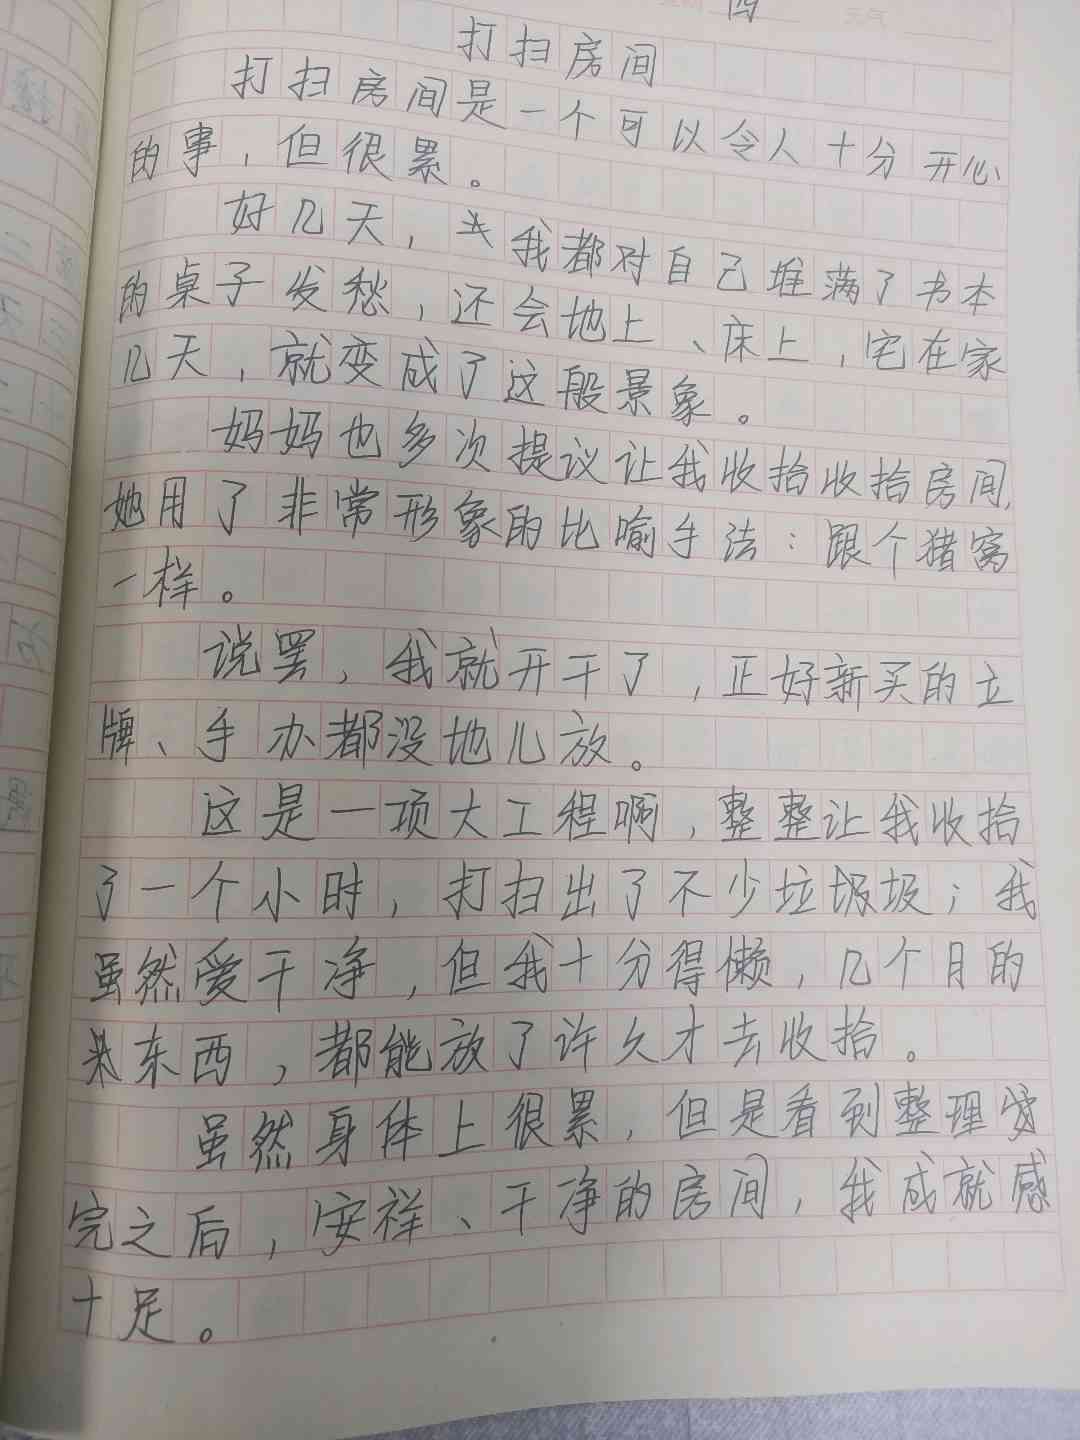 四
打扫房间
打扫房间是一个可以令人十分开心
的事，但很累。
好几天，我都对自己堆满了书本
的桌子发愁，还会地上、床上，宅在家
几天，就变成了这般景象。
妈妈也多次提议让我收拾收拾房间，
她用了非常形象的比喻手法：跟个猪窝
一样。
说罢，我就开干了，正好新买的立
牌、手办都没地儿放。
这是一项大工程啊，整整让我收拾
了一个小时，打扫出了不少垃圾圾；我
虽然爱干净，但我十分得懒，几个月的
东西，都能放了许久才去收拾。
虽然身体上很累，但是看到整理
完之后，安祥、干净的房间，我成就感
十足。